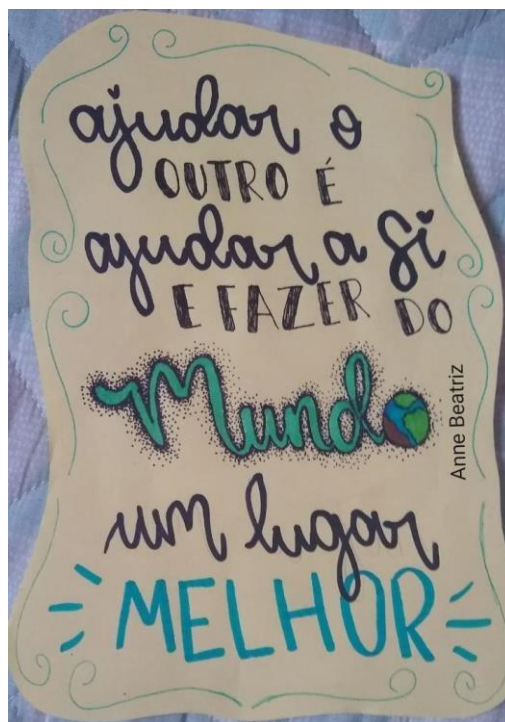 ajudar o
OUTRO É
ajudar a si
E FAZER DO
Mundo
um lugar
MELHOR
Anne Beatriz